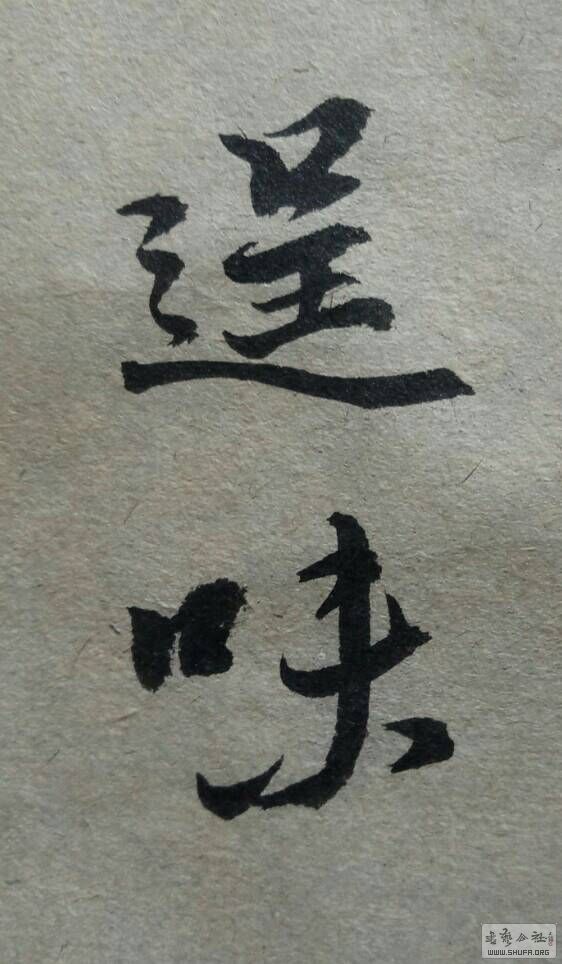 逞
味
書藝公社
WWW.SHUFA.ORG